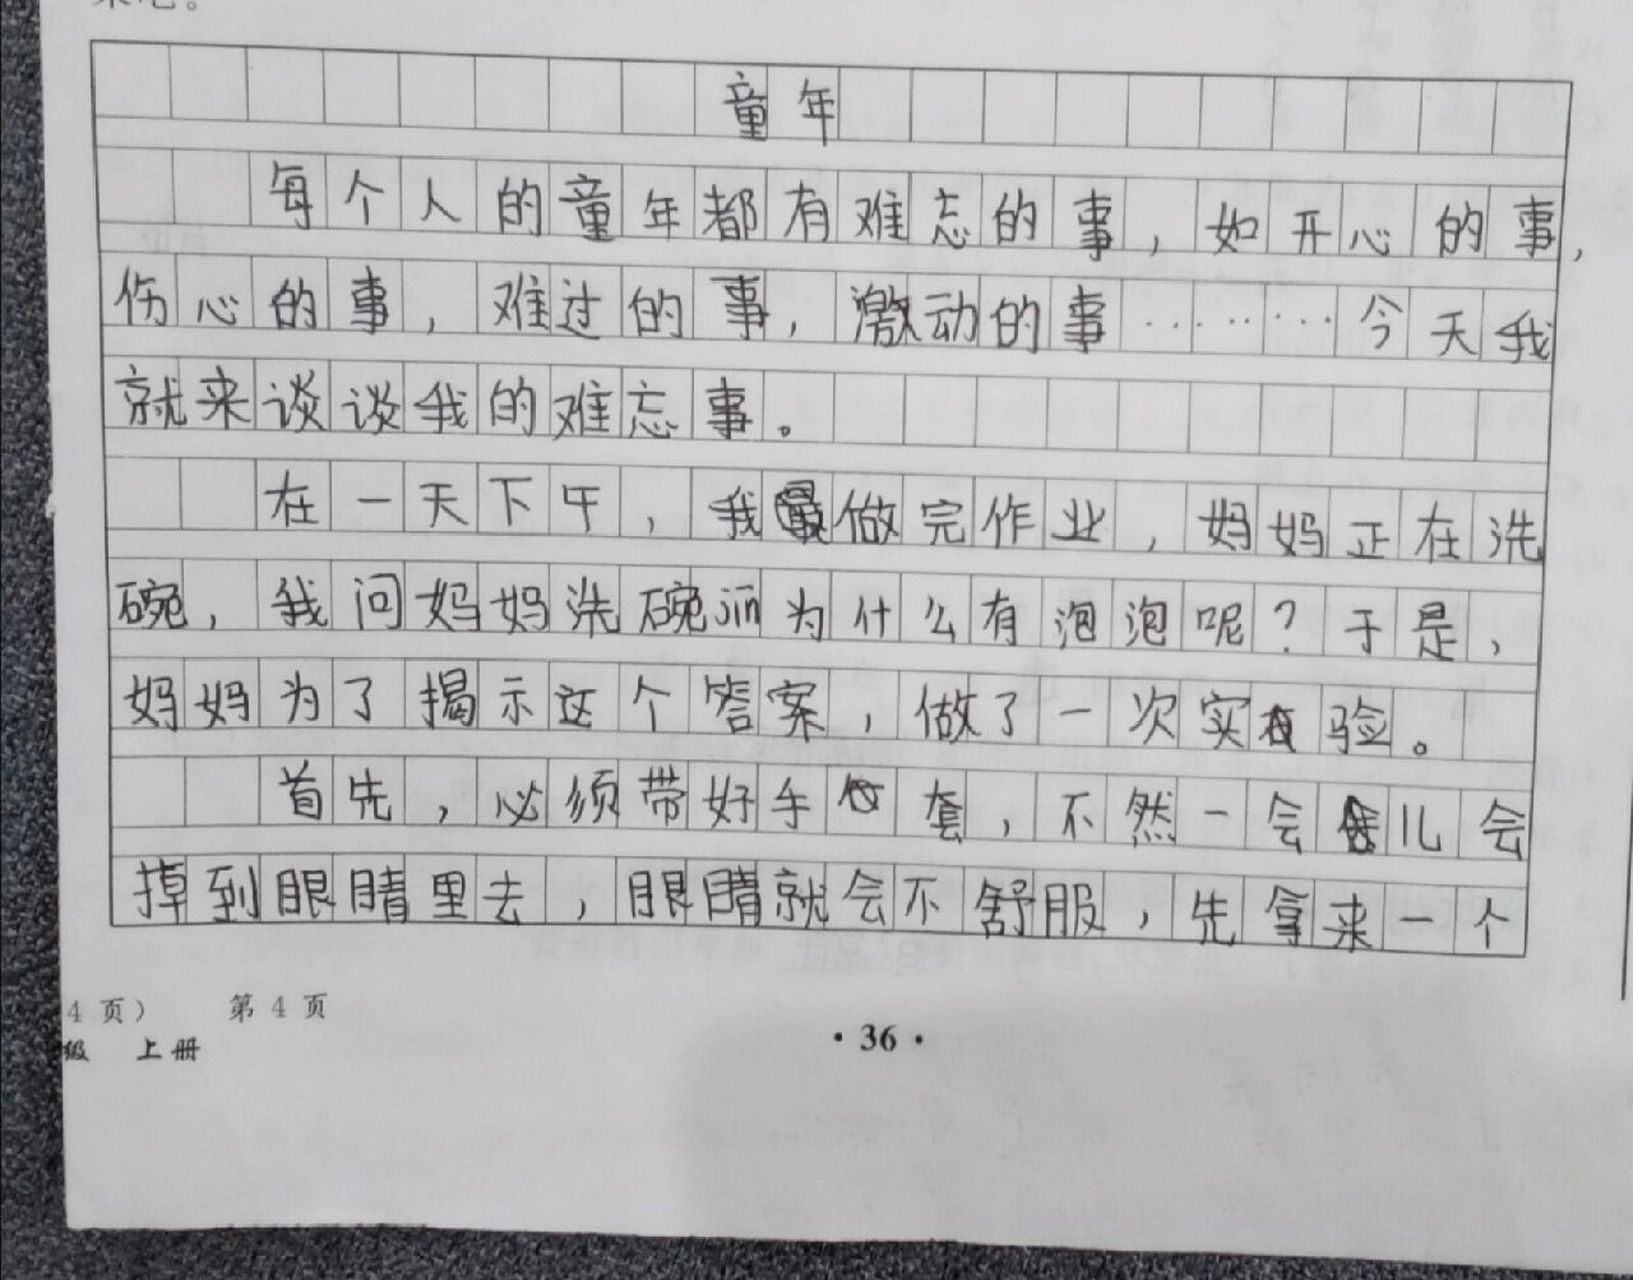 童年
每个人的童年都有难忘的事，如开心的事，
伤心的事，难过的事，激动的事………今天我
就来谈谈我的难忘事。
在一天下午，我做完作业，妈妈正在洗
碗，我问妈妈洗碗jīn为什么有泡泡呢？于是，
妈妈为了揭示这个答案，做了一次实验。
首先，必须带好手套，不然一会儿会
掉到眼睛里去，眼睛就会不舒服，先拿来一个
4 页） 第 4 页
级 上册
·36·